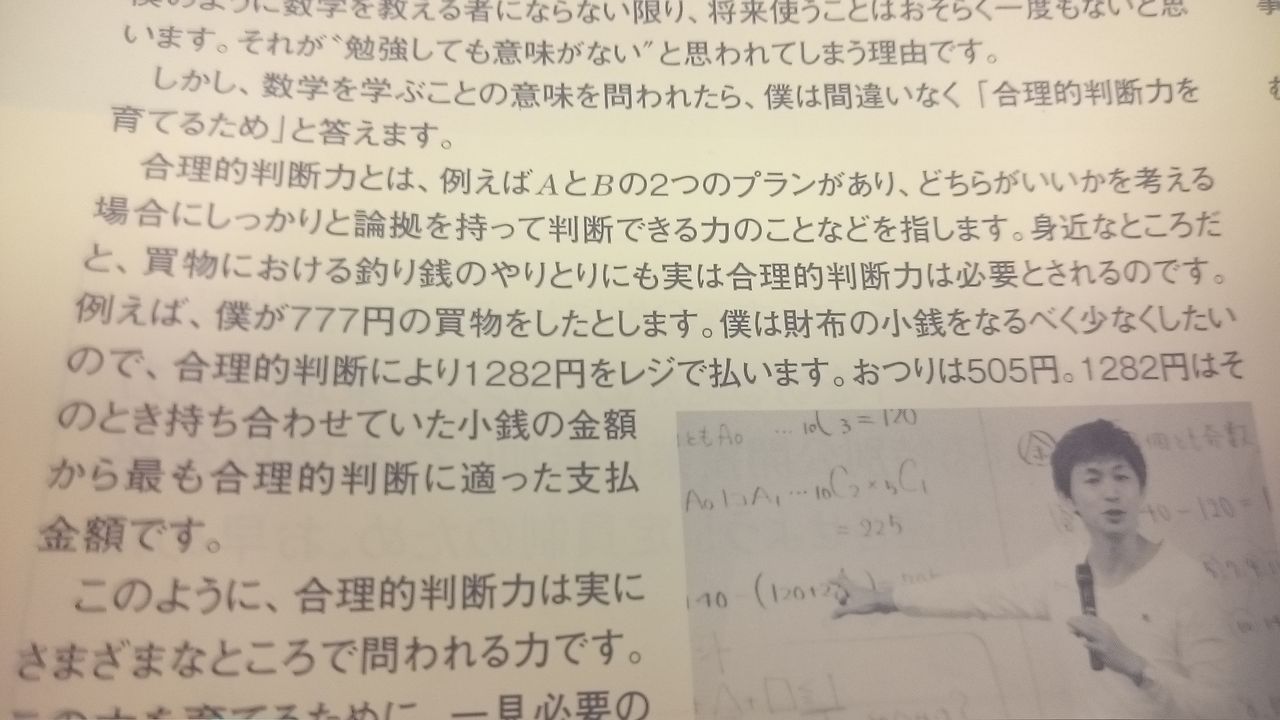 僕のように数学を教える者にならない限り、将来使うことはおそらく一度もないと思
います。それが〝勉強しても意味がない〟と思われてしまう理由です。
しかし、数学を学ぶことの意味を問われたら、僕は間違いなく「合理的判断力を
育てるため」と答えます。
合理的判断力とは、例えばAとBの2つのプランがあり、どちらがいいかを考える
場合にしっかりと論拠を持って判断できる力のことなどを指します。身近なところだ
と、買物における釣り銭のやりとりにも実は合理的判断力は必要とされるのです。
例えば、僕が777円の買物をしたとします。僕は財布の小銭をなるべく少なくしたい
ので、合理的判断により1282円をレジで払います。おつりは505円。1282円はそ
のとき持ち合わせていた小銭の金額
から最も合理的判断に適った支払
金額です。
このように、合理的判断力は実に
さまざまなところで問われる力です。
この力を育てるために、一見必要の
ともA₀ … ₁₀C₃=120
A₀ 1コA₁…₁₀C₂×₅C₁
=225